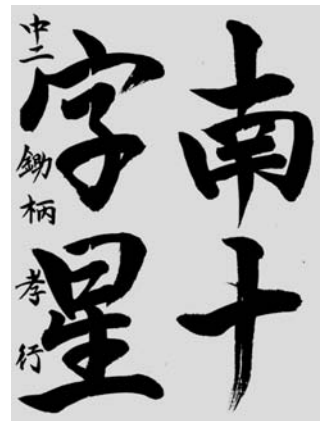 南十
字星
中二 鋤柄 孝行